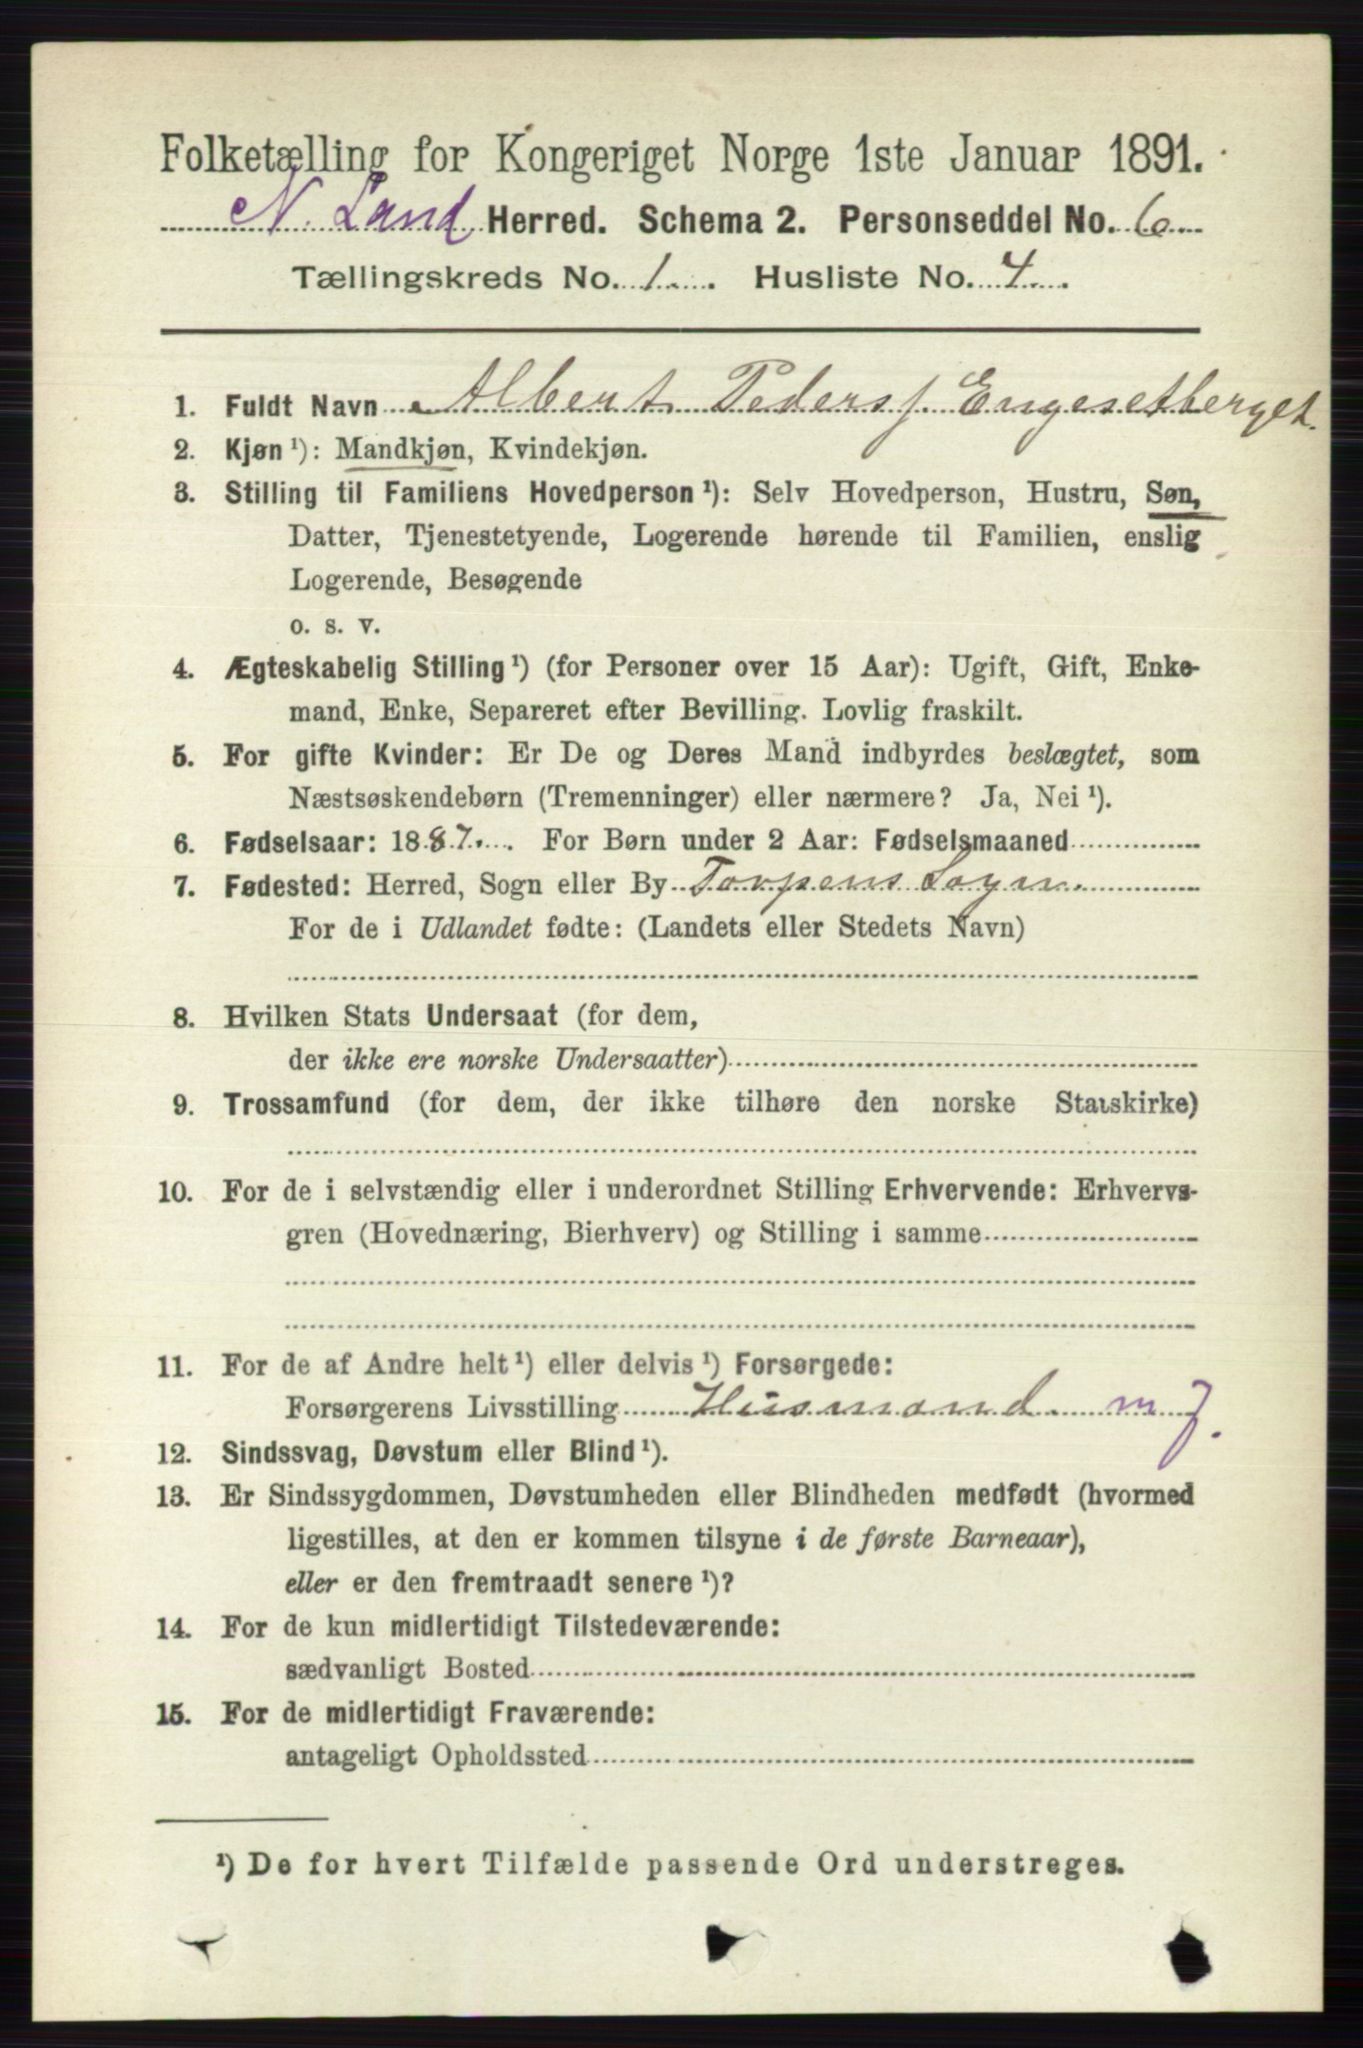 Folketælling for Kongeriget Norge 1ste Januar 1891.
N. Land Herred. Schema 2. Personseddel No. 6
Tællingskreds No. 1. Husliste No. 4
1. Fuldt Navn Albert Peders. Engesetberget.
2. Kjøn ¹): Mandkjøn, Kvindekjøn.
3. Stilling til Familiens Hovedperson ¹): Selv Hovedperson, Hustru, Søn,
Datter, Tjenestetyende, Logerende hørende til Familien, enslig
Logerende, Besøgende
o. s. v.
4. Ægteskabelig Stilling ¹) (for Personer over 15 Aar): Ugift, Gift, Enke-
mand, Enke, Separeret efter Bevilling. Lovlig fraskilt.
5. For gifte Kvinder: Er De og Deres Mand indbyrdes beslægtet, som
Næstsøskendebørn (Tremenninger) eller nærmere? Ja, Nei ¹).
6. Fødselsaar: 1887. For Børn under 2 Aar: Fødselsmaaned
7. Fødested: Herred, Sogn eller By Torpens Sogn.
For de i Udlandet fødte: (Landets eller Stedets Navn)
8. Hvilken Stats Undersaat (for dem,
der ikke ere norske Undersaatter)
9. Trossamfund (for dem, der ikke tilhøre den norske Statskirke)
10. For de i selvstændig eller i underordnet Stilling Erhvervende: Erhvervs-
gren (Hovednæring, Bierhverv) og Stilling i samme
11. For de af Andre helt ¹) eller delvis ¹) Forsørgede:
Forsørgerens Livsstilling Husmand m J.
12. Sindssvag, Døvstum eller Blind ¹).
13. Er Sindssygdommen, Døvstumheden eller Blindheden medfødt (hvormed
ligestilles, at den er kommen tilsyne i de første Barneaar),
eller er den fremtraadt senere ¹)?
14. For de kun midlertidigt Tilstedeværende:
sædvanligt Bosted
15. For de midlertidigt Fraværende:
antageligt Opholdssted
¹) De for hvert Tilfælde passende Ord understreges.